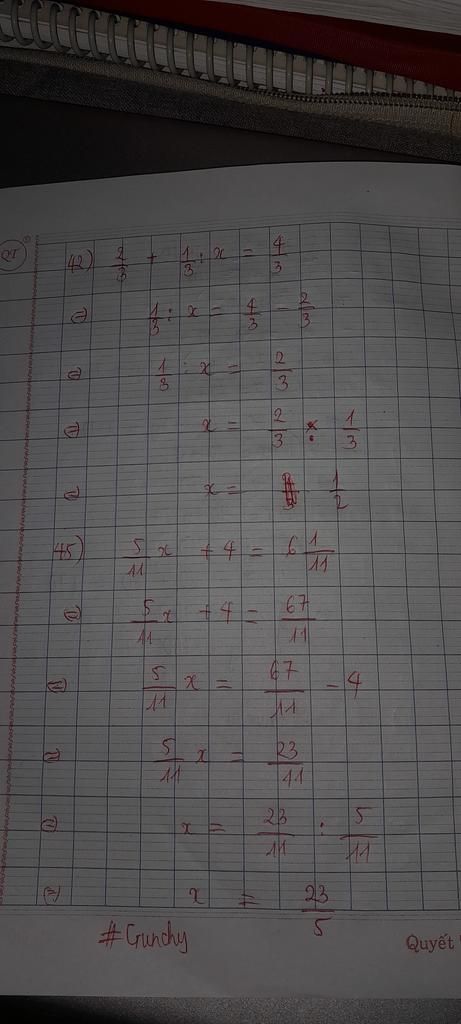 QT
42) 2/3 + 1/3 : x = 4/3
(=) 1/3 : x = 4/3 - 2/3
(=) 1/3 : x = 2/3
(=) x = 2/3 : 1/3
(=) x = 1/2
45) 5/11 x + 4 = 6 1/11
(=) 5/11 x + 4 = 67/11
(=) 5/11 x = 67/11 - 4
(=) 5/11 x = 23/11
(=) x = 23/11 : 5/11
(=) x = 23/5
#Crunchy
Quyết